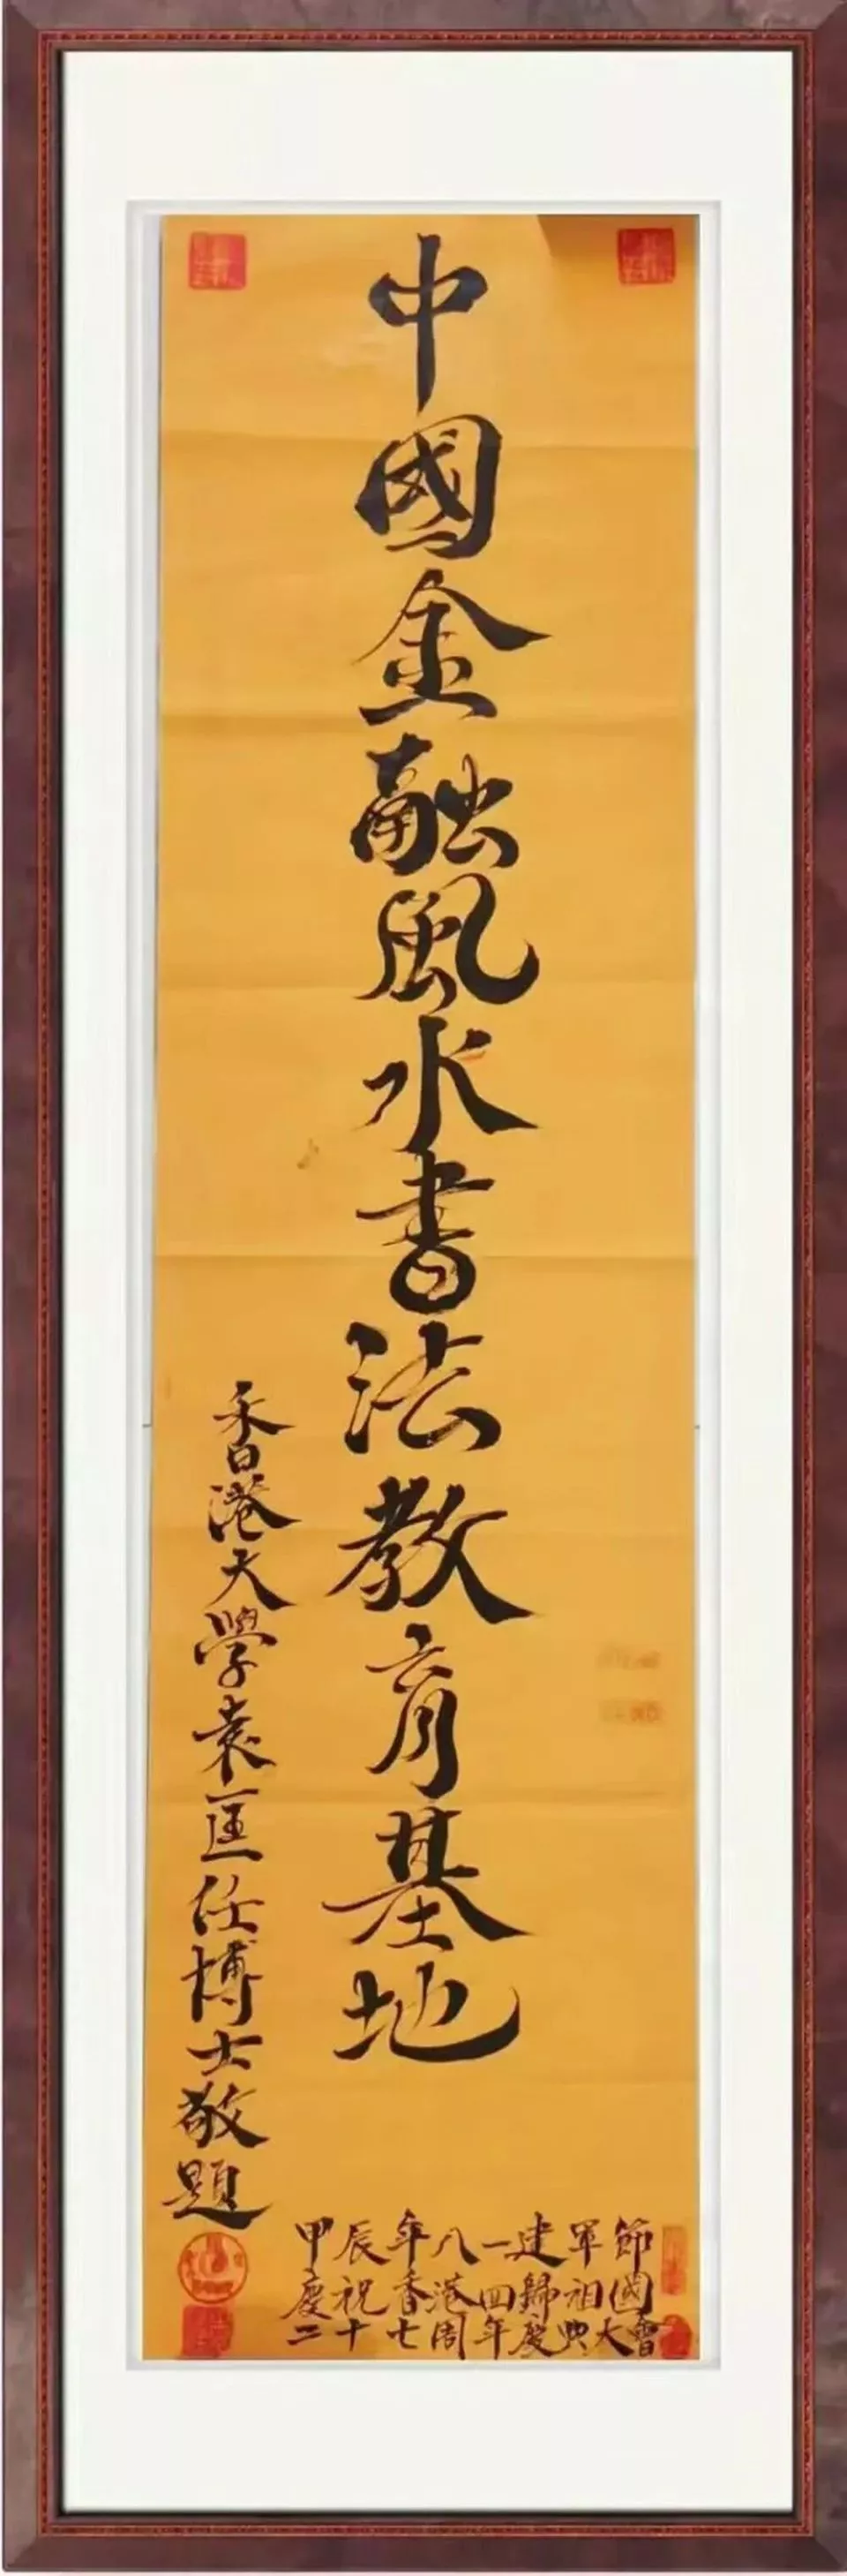 中國金融風水書法教育基地
香港大學袁匡任博士敬題
甲辰年八一建軍節
慶祝香港回歸祖國
二十七周年慶典大會